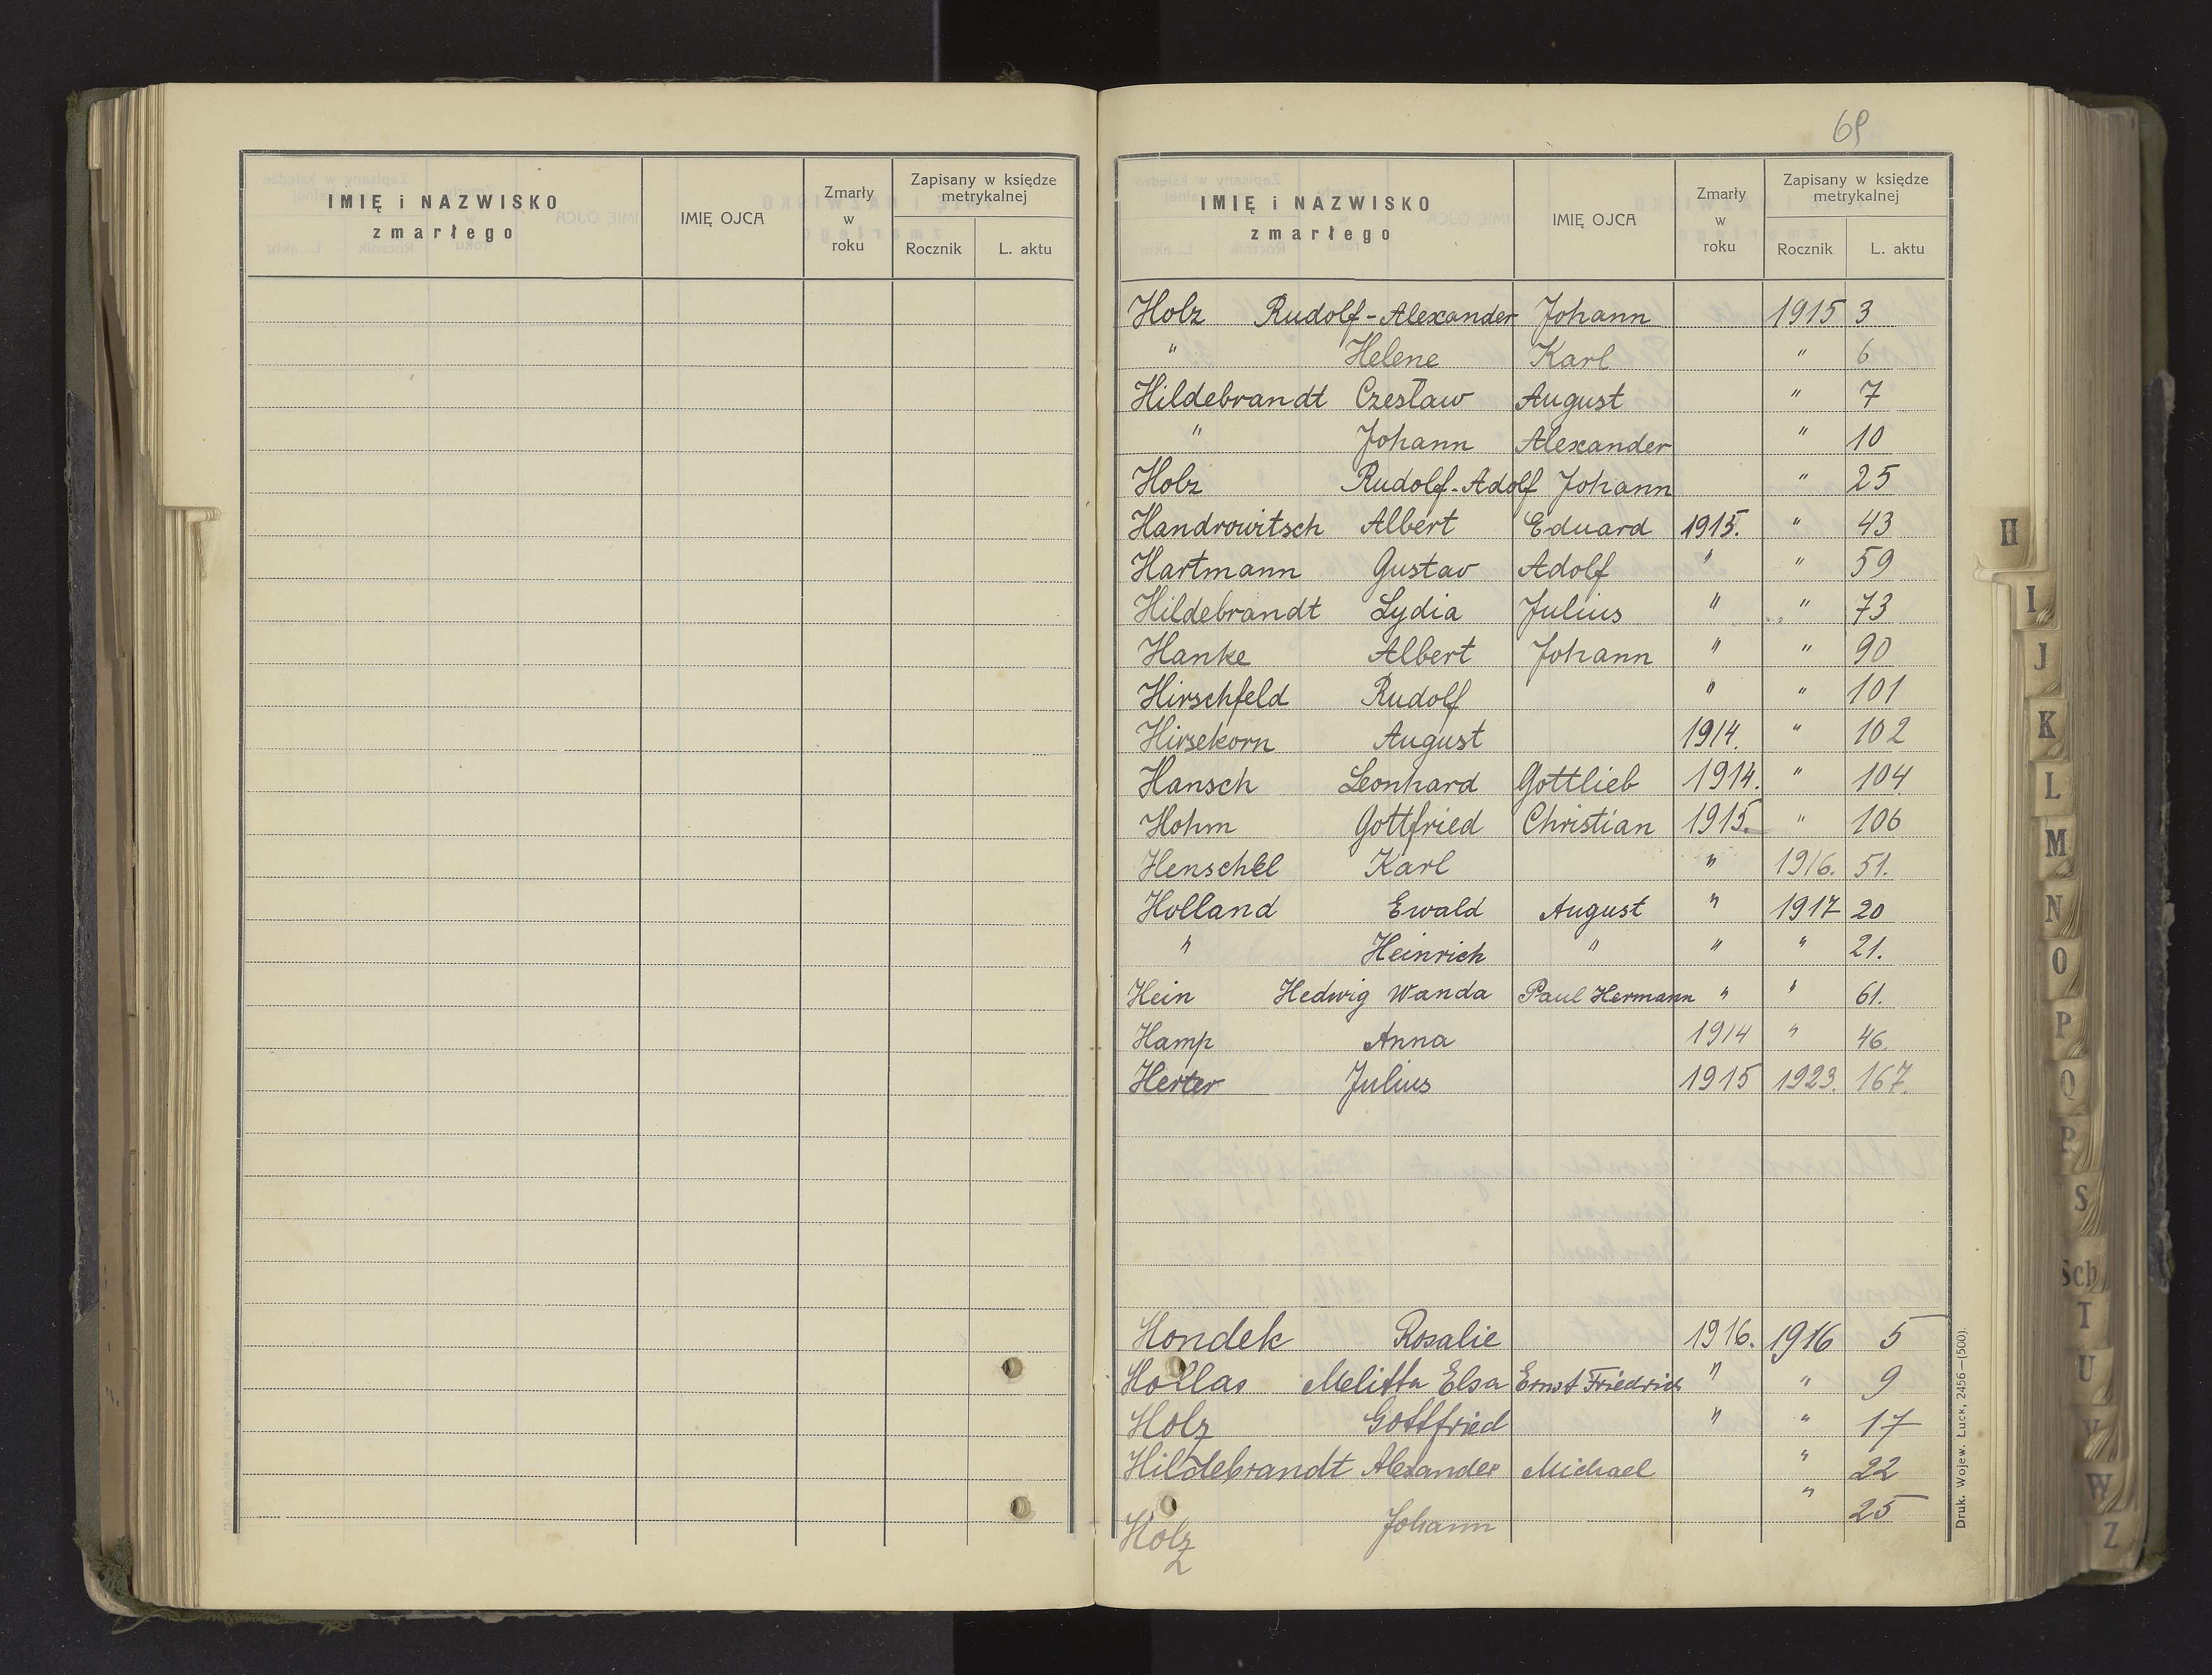 69
IMIĘ i NAZWISKO zmarłego IMIĘ OJCA Zmarły w roku Zapisany w księdze metrykalnej Rocznik L. aktu
IMIĘ i NAZWISKO zmarłego IMIĘ OJCA Zmarły w roku Zapisany w księdze metrykalnej Rocznik L. aktu
Holz Rudolf-Alexander Johann 1915 3
" Helene Karl " 6
Hildebrandt Czesław August " 7
" Johann Alexander " 10
Holz Rudolf-Adolf Johann " 25
Handrowitsch Albert Eduard 1915. " 43
Hartmann Gustav Adolf " " 59
Hildebrandt Lydia Julius " " 73
Hanke Albert Johann " " 90
Hirschfeld Rudolf " " 101
Hirsekorn August 1914. " 102
Hansch Leonhard Gottlieb 1914. " 104
Hohm Gottfried Christian 1915. " 106
Henschel Karl " 1916. 51.
Holland Ewald August " 1917 20
" Heinrich " " " 21.
Hein Hedwig Wanda Paul Hermann " " 61.
Hamp Anna 1914 " 46.
Herter Julius 1915 1923. 167.
Hondek Rosalie 1916. 1916 5
Hollas Melitta Elsa Ernst Friedrich " " 9
Holz Gottfried " " 17
Hildebrandt Alexander Michael " 22
Holz Johann " 25
Druk. Wojew. Łuck, 2456—(500).
H
I
J
K
L
M
N
O
P
Q
R
S
Sch
T
U
V
W
Z